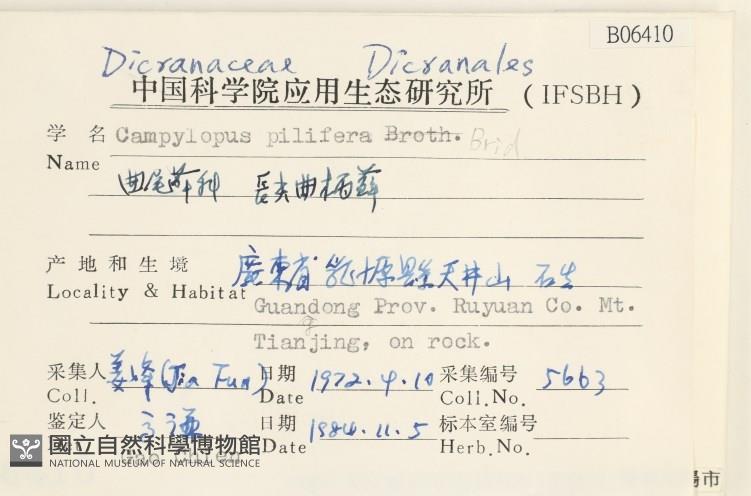 B06410
Dicranaceae Dicranales
中国科学院应用生态研究所 (IFSBH)
学名 Campylopus pilifera Broth. Brid
Name
曲尾蘚科 長尖曲柄蘚
产地和生境 廣東省 縣天井山 石生
Locality & Habitat Guandong Prov. Ruyuan Co. Mt.
g
Tianjing, on rock.
采集人 日期 1972.4.10 采集编号 5663
Coll. Date Coll.No.
鉴定人 高谦 日期 1984.11.5 标本室编号
Date Herb.No.
國立自然科學博物館
NATIONAL MUSEUM OF NATURAL SCIENCE
市